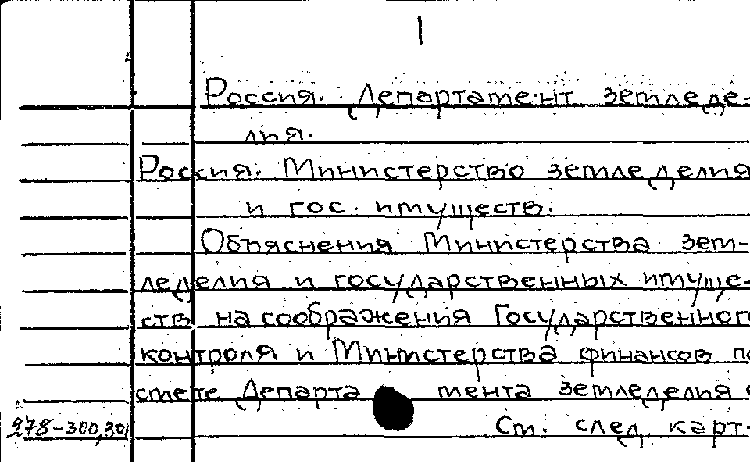 1
Россия. Департамент земледе-
лия.
Россия. Министерство земледелия
и гос. имуществ.
Объяснения Министерства зем-
леделия и государственных имуще-
ств на соображения Государственного
контроля и Министерства финансов по
смете Департамента земледелия
278-300,301 См. след. карт.